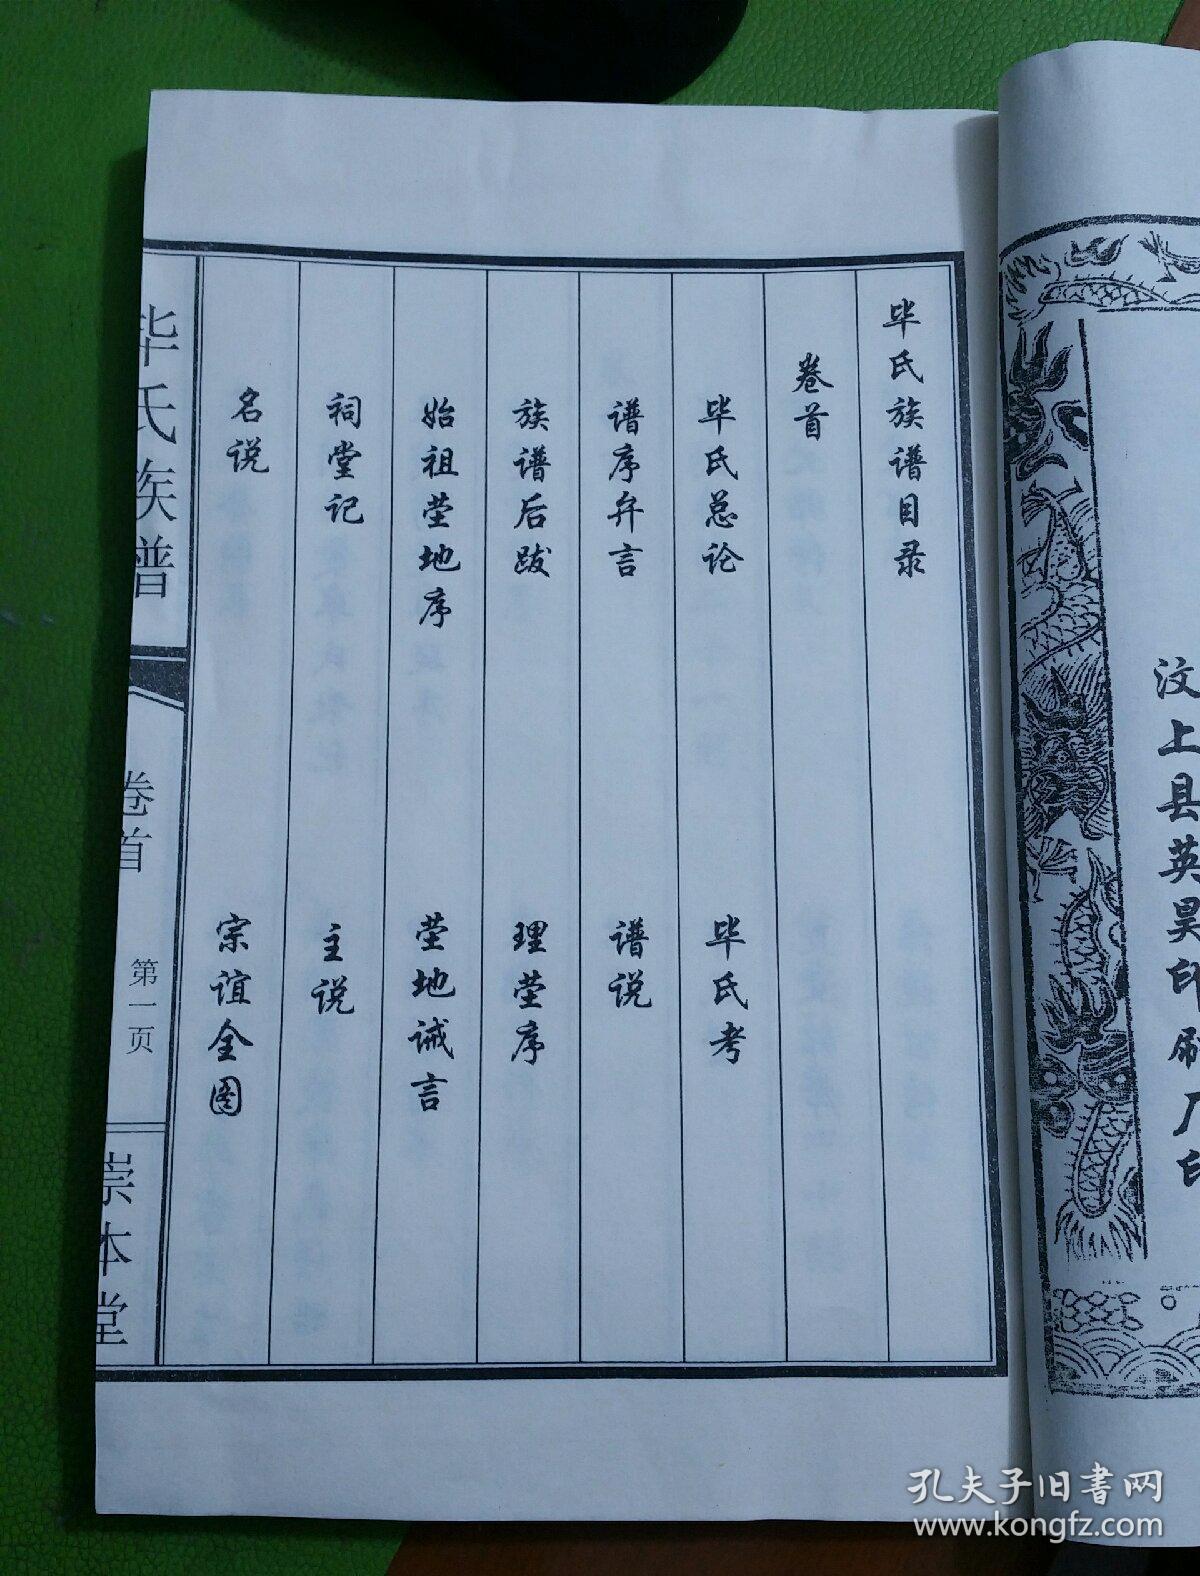 汶上县英昊印刷厂印
毕氏族谱目录
卷首
毕氏总论 毕氏考
谱序弁言 谱说
族谱后跋 理茔序
始祖茔地序 茔地诫言
祠堂记 主说
名说 宗谊全图
毕氏族谱 卷首 第一页 崇本堂
孔夫子旧书网
www.kongfz.com